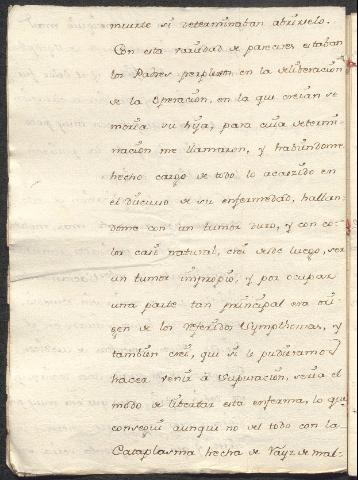 muerte si determinaban abrirselo.
Con esta variedad de pareceres estaban
los Padres perplexos en la deliberación
de la Operación, en la que creían se
moría su hija, para cuia determi-
nación me llamaron, y habiendome
hecho cargo de todo lo acaecido en
el discurso de su enfermedad, hallan-
dome con un tumor duro, y con co-
lor casi natural, creí desde luego, ser
un tumor impropio, y por ocupar
una parte tan principal era ori-
gen de los referidos Symptomas, y
tambien creí, que si le pudieramos
hacer venir à Supuración, sería el
modo de libertar esta enferma, lo que
conseguí aunque no del todo con la
Cataplasma hecha de Rayz de mal-